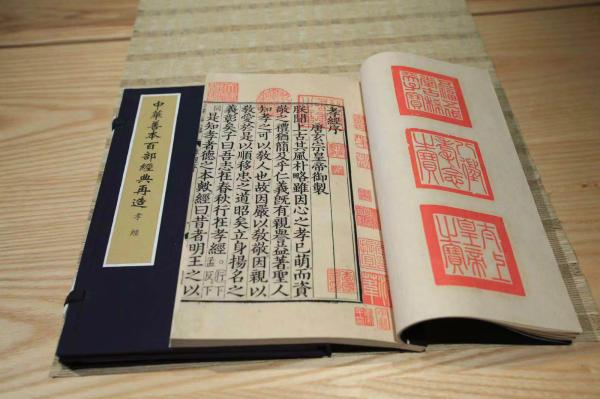 中華善本百部經典再造
孝經
孝經序
唐玄宗皇帝御製
朕聞上古其風朴略雖因心之孝已萌而資
敬之禮猶簡及乎仁義既有親譽益著聖人
知孝之可以教人也故因嚴以教敬因親以
教愛於是以順移忠之道昭矣立身揚名之
義彰矣子曰吾志在春秋行在孝經行下孟反下
同是知孝者德之本歟經曰昔者明王之以
八徵耄念之寶
太上皇帝之寶